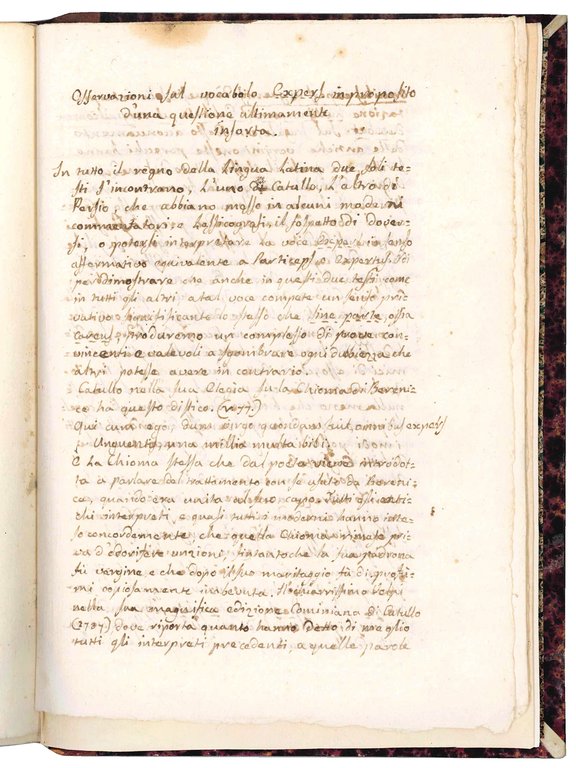 Osservazioni sul vocabolo Expers in proposito
d'una questione ultimamente
insorta.
In tutto il regno della Lingua Latina due soli te=
sti s'incontrano, L'uno di Catullo, L'altro di
Persio, che abbiano mosso in alcuni moderni
commentatori e Lessicografi il sospetto di dover=
si, o potersi interpretare la voce Expers in senso
affermativo equivalente a Particeps o Expertus. Di
però dimostrare che anche in questi due testi come
in tutti gli altri a tal voce compete un senso pri=
vativo significante lo stesso che sine parte, ossia
carens produremo un complesso di prove con=
vincenti e valevoli a sgombrare ogni dubbiezza che
altri potesse avere in contrario.
Catullo nella sua Elegia sulla Chioma di Bereni=
ce ha questo distico. (v. 77.)
Qui cum ego, dum virgo quondam fuit, omnibus expers
Unguentis, una millia multa bibi.
È la Chioma stessa che dal poeta viene introdot=
ta a parlare del trattamento con se usato da Bereni=
ce, quando era unita al suo capo. Tutti gli anti=
chi interpreti, e quasi tutti i moderni hanno inte=
so concordemente, che questa Chioma rimase pri=
va d'odorifere unzioni, tintantoche la sua padrona
fù vergine, e che dopo il suo maritaggio fù di profu=
mi copiosamente imbevuta. Il chiarissimo Volpi
nella sua magnifica edizione Cominiana di Catullo
(1737) dove riporta quanto hanno detto di meglio
tutti gli interpreti precedenti, a quelle parole